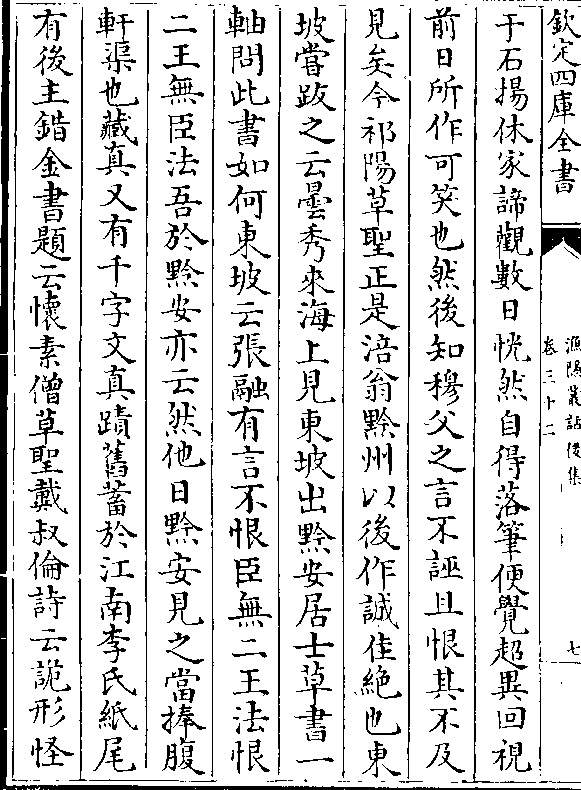 欽定四庫全書
漁隱叢話後集
卷三十二
七
于石揚休家諦觀數日恍然自得落筆便覺超異回視
前日所作可笑也然後知穆父之言不誣且恨其不及
見矣今祁陽草聖正是涪翁黔州以後作誠佳絶也東
坡嘗跋之云曇秀來海上見東坡出黔安居士草書一
軸問此書如何東坡云張融有言不恨臣無二王法恨
二王無臣法吾於黔安亦云然他日黔安見之當捧腹
軒渠也藏真又有千字文真蹟舊蓄於江南李氏紙尾
有後主錯金書題云懷素僧草聖戴叔倫詩云詭形怪